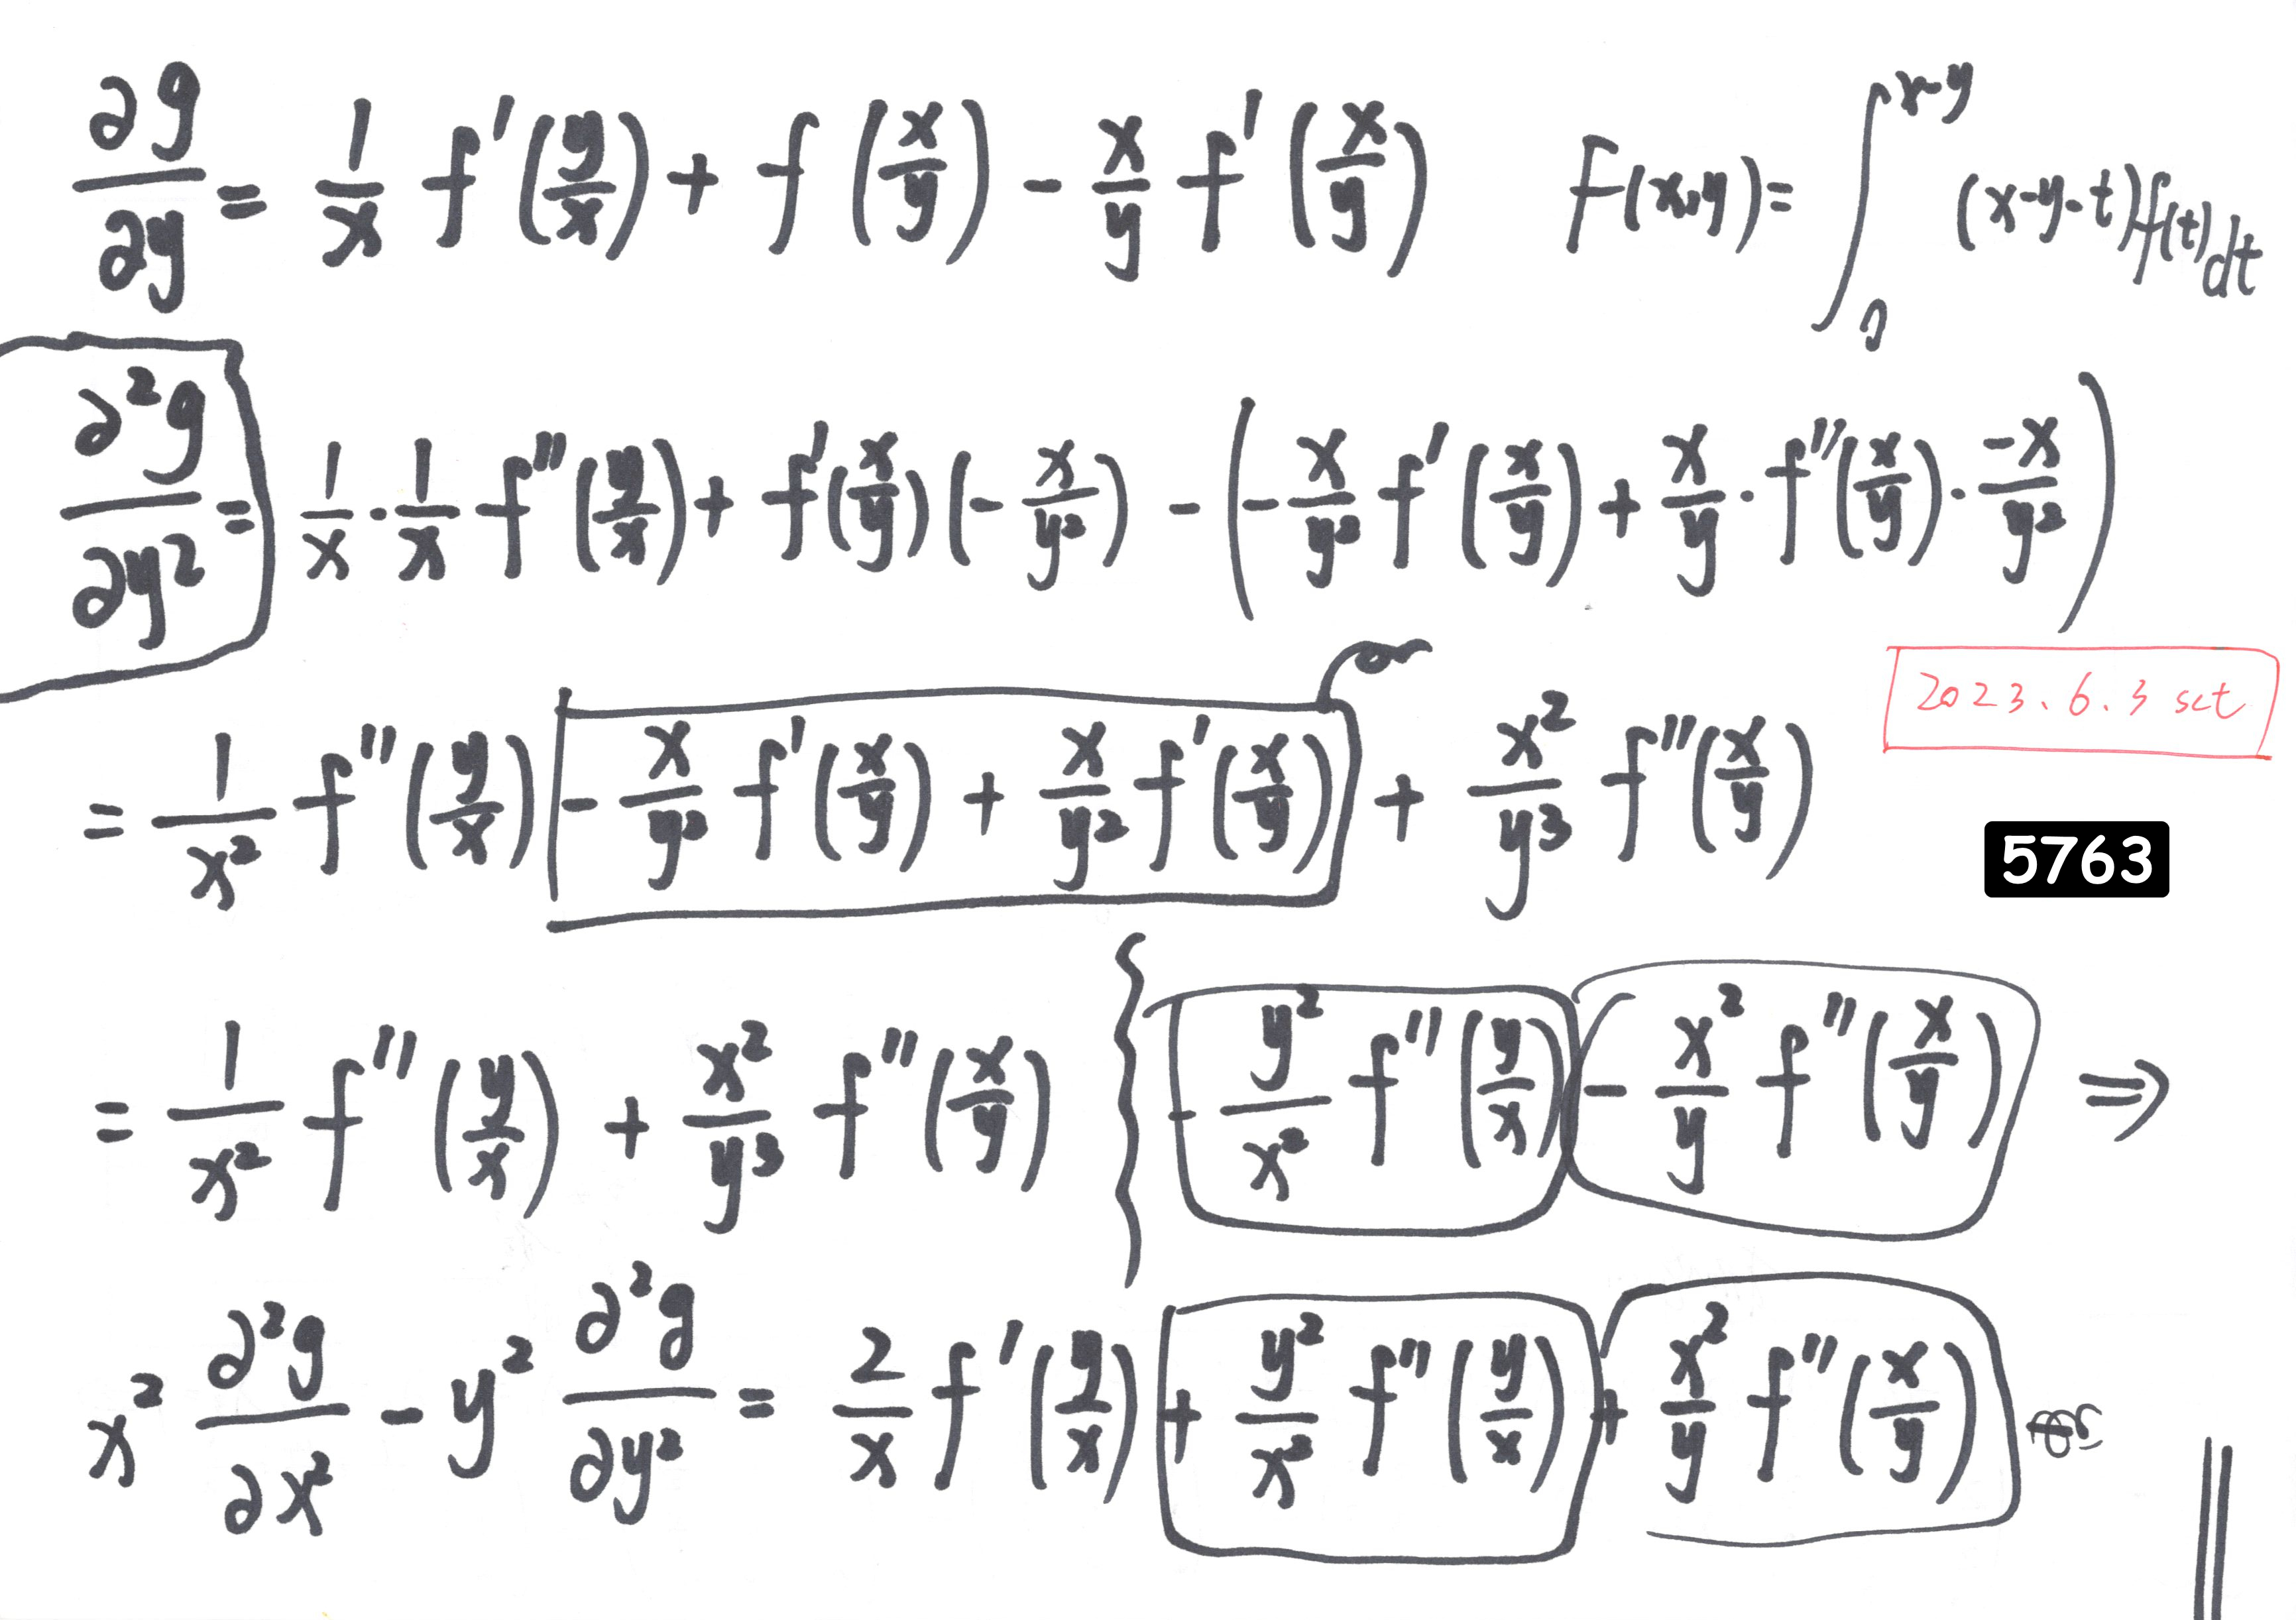 ∂g/∂y = 1/x f'(y/x) + f(x/y) - x/y f'(x/y)
F(x,y) = ∫_0^{x-y} (x-y-t)f(t)dt
∂²g/∂y² = 1/x · 1/x f''(y/x) + f'(x/y)(-x/y²) - (-x/y² f'(x/y) + x/y · f''(x/y) · -x/y²)
2023.6.3 sat
= 1/x² f''(y/x) - x/y² f'(x/y) + x/y² f'(x/y) + x²/y³ f''(x/y)
5763
= 1/x² f''(y/x) + x²/y³ f''(x/y) { - y²/x² f''(y/x) - x²/y f''(x/y) ⇒
x² ∂²g/∂x² - y² ∂²g/∂y² = 2/x f'(y/x) + y²/x² f''(y/x) + x²/y f''(x/y)